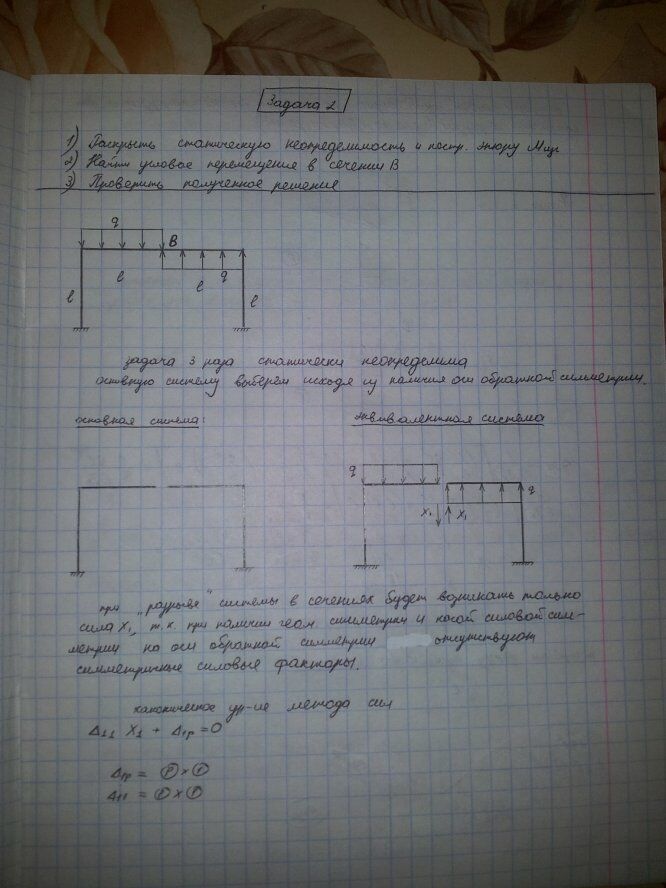 Задача 2
1) Раскрыть статическую неопределимость и постр. эпюру Mизг
2) Найти угловое перемещение в сечении B
3) Проверить полученное решение
q
B
l
l
q
l
l
задача 3 раза статически неопределима
основную систему выберем исходя из наличия оси обратной симметрии.
основная система:
эквивалентная система
q
q
X₁
X₁
при „разрыве“ системы в сечениях будет возникать только
сила X₁, т.к. при наличии геом. симметрии и косой силовой сим-
метрии на оси обратной симметрии отсутствуют
симметричные силовые факторы.
каноническое ур-ие метода сил
Δ₁₁ X₁ + Δ₁р = 0
Δ₁р = Ⓟ × ①
Δ₁₁ = ① × ①